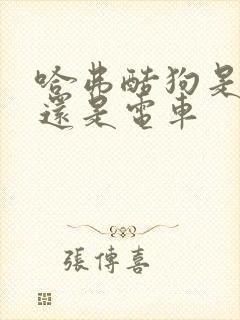 哈弗酷狗是
還是電車
張傳喜